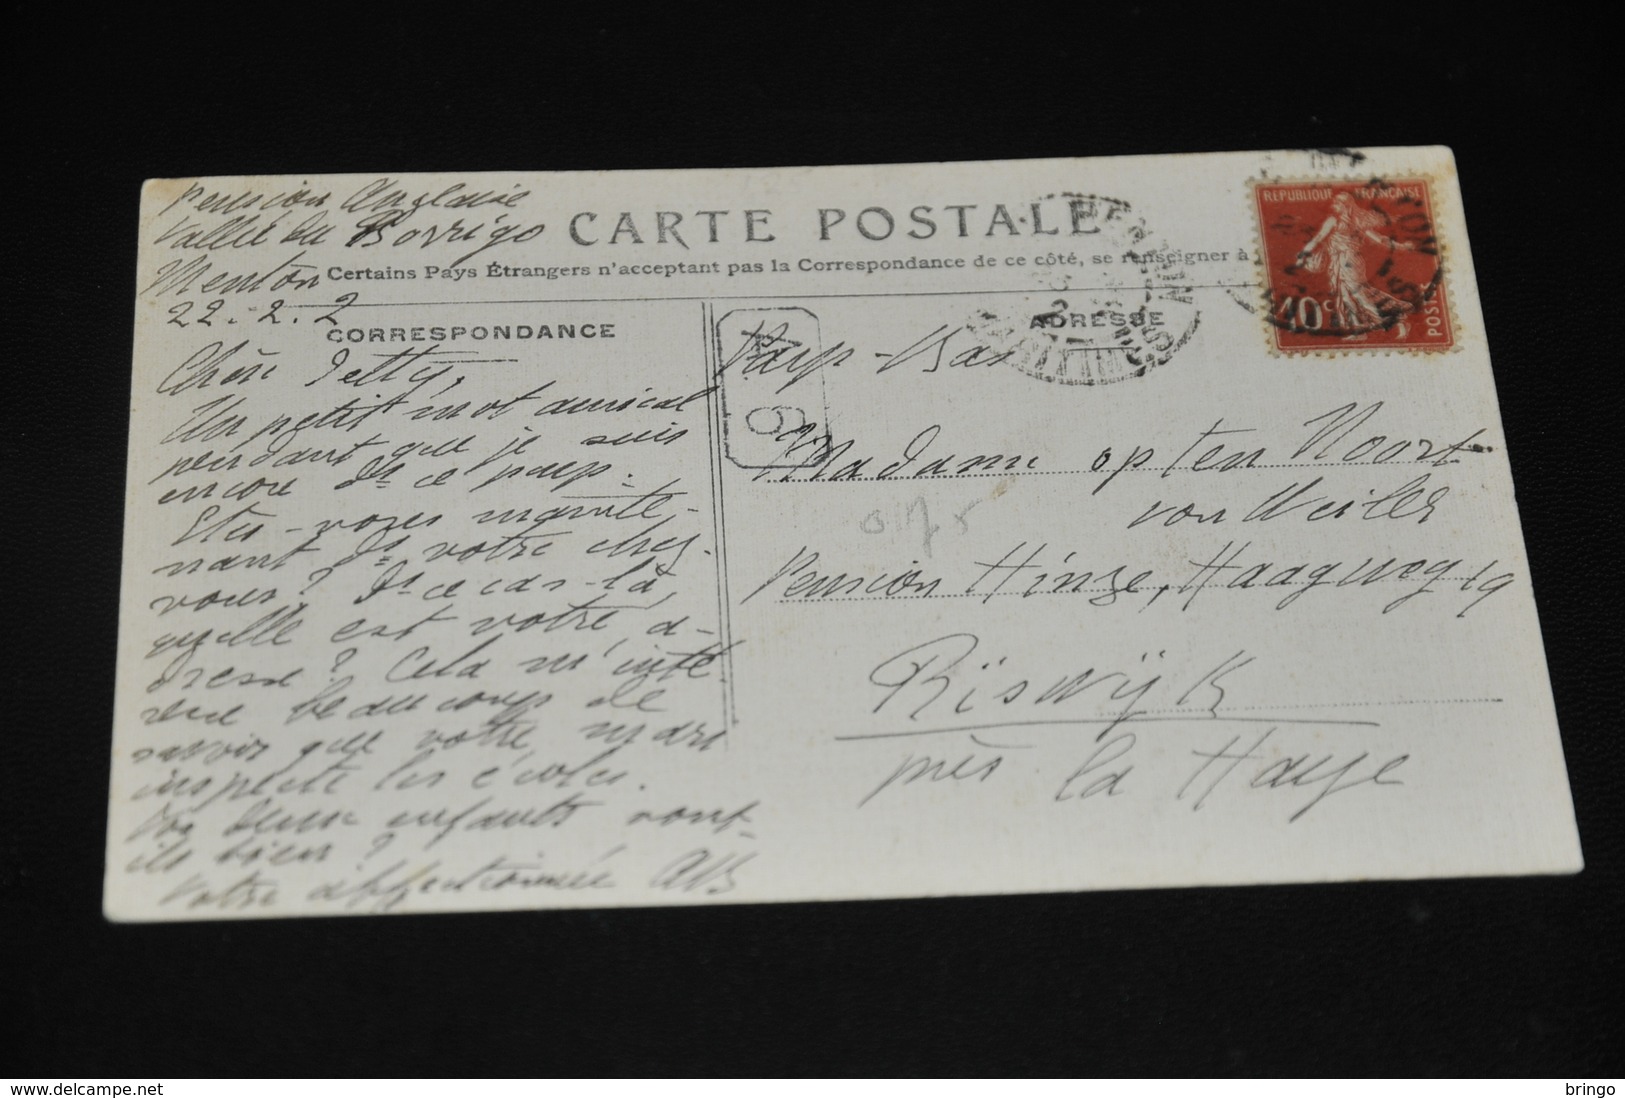 Pension Anglaise
Vallée du Borrigo
Menton
22.2.2
CARTE POSTALE
Certains Pays Étrangers n'acceptant pas la Correspondance de ce côté, se renseigner à
CORRESPONDANCE
ADRESSE
Chère Jetty,
Un petit mot amical
pendant que je suis
encore ds ce pays.
Etes-vous mainte-
nant ds votre chez-
vous? Ds ce cas-là,
quelle est votre a-
dresse? Cela m'inté-
resse beaucoup de
savoir que votre mari
inspecte les écoles.
Vos deux enfants vont-
ils bien?
Votre affectionnée AB
Pays-Bas
Madame op ten Noort
von Weiler
Pension Hinze, Haagweg 19
Rijswijk
près la Haye
REPUBLIQUE FRANÇAISE
10 c
POSTES
delcampe.net
bringo